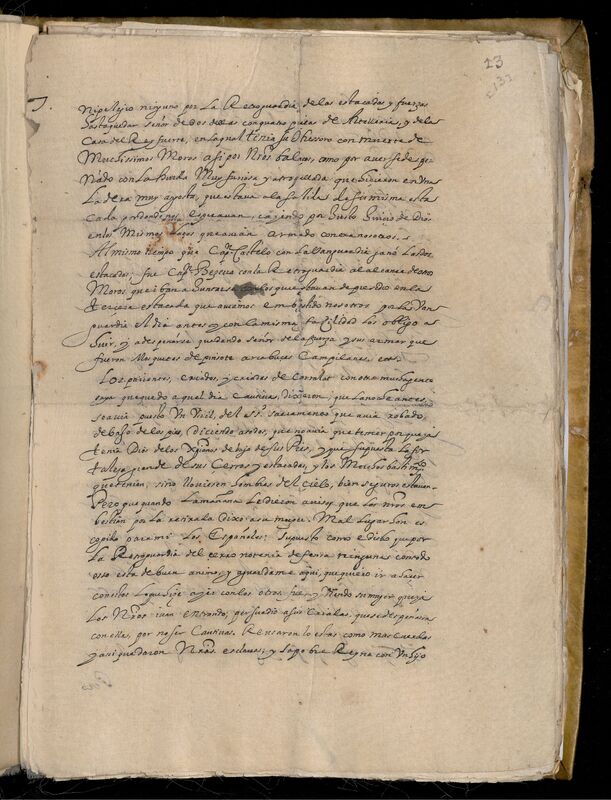 23
ni peligro ninguno por la Retroguardia, de las estacadas y fuerzas
hasta quedar señor de dos dellas con quatro pieças de Artilleria, y de la
Casa del Rey fuerte, en la qual tenia su thessoro con muerte de
Muchissimos Moros assi por Nros balaços, como por averse despe-
ñado con la huida Muy furiosa y atropellada que hicieron en una
ladera muy agosta, que estava a la salida de su misma esta
cada por donde nos esperavan, cayendo por Justo Juiçio de Dios
en los Mismos lazos que avian armado contra nosotros.
Al mismo tiempo que Capn Castelo con la Vanguardia ganó las dos
estacadas; fue Capn Bezerra con la Retroguardia al alcance de otros
Moros que iban a Juntarse con los que estavan de presidio en la
tercera estacada que aviamos embestido nosotros por la Van
guardia el dia antes, y con la misma facilidad los obligo a
huir, y a despeñarse quedando señor de la fuerza y sus armas que
fueron Mosquetes de pinote arcabuzes Campilanes, etc.
Los prisioneros, criados, y criadas de Corralat con otra mucha gente
suya que quedo aquel dia Cautiva, dixeron; que la noche antes
se avia puesto un Viril del SSmo Sacramento que avia robado,
debajo de los pies, diciendo a todos, que no avia que temer porque ya
tenia Dios de los Xpianos debajo de sus Pies, y que supuesta la for
taleza grande de sus Cerros y estacadas, y los Muchos bastimtos
que tenian, sino lloviessen hombres del Cielo, bien seguros estavan.
Pero que quando la mañana le dieron aviso que los nros em
bestian por la retirada dixo a su muger. Mal lugar han es
cogido para mi los Españoles: supuesto como e dicho que por
la Retroguardia del cerro no tenia defensa ninguna: con todo
esso esta de buen animo, y aguardame aqui, que quiero ir a haçer
con estos lo que hiçe ayer con los otros, fue, y viendo su muger que ya
los Nros ivan entrando, persuadio a sus Criadas, que se despeñassen
con ella, por no ser Cautivas. Rehusaron lo estas como mas cuerdas
y assi quedaron Nras esclavas; y la pobre Reyna con un hijo